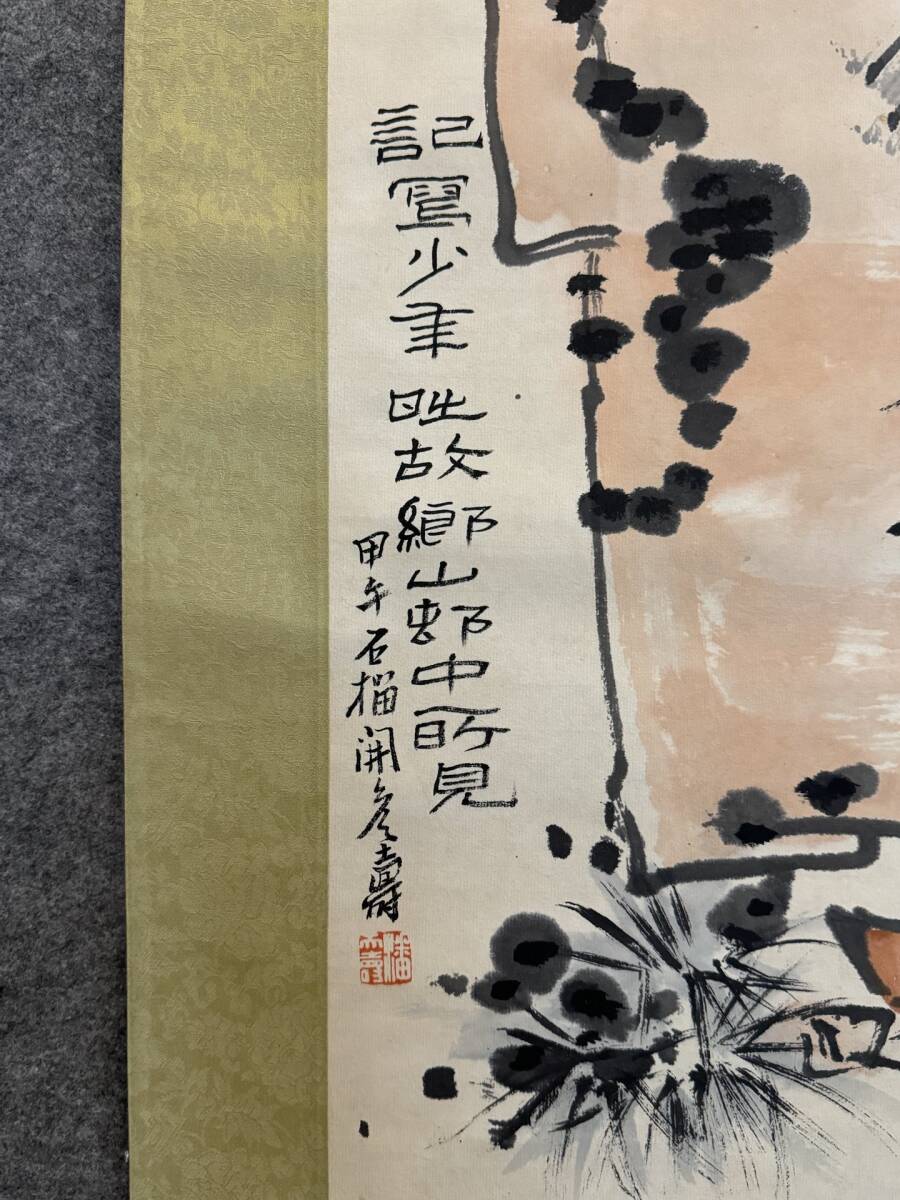 記寫少年時故鄉山邨中所見
甲午石榴開壽
潘天壽